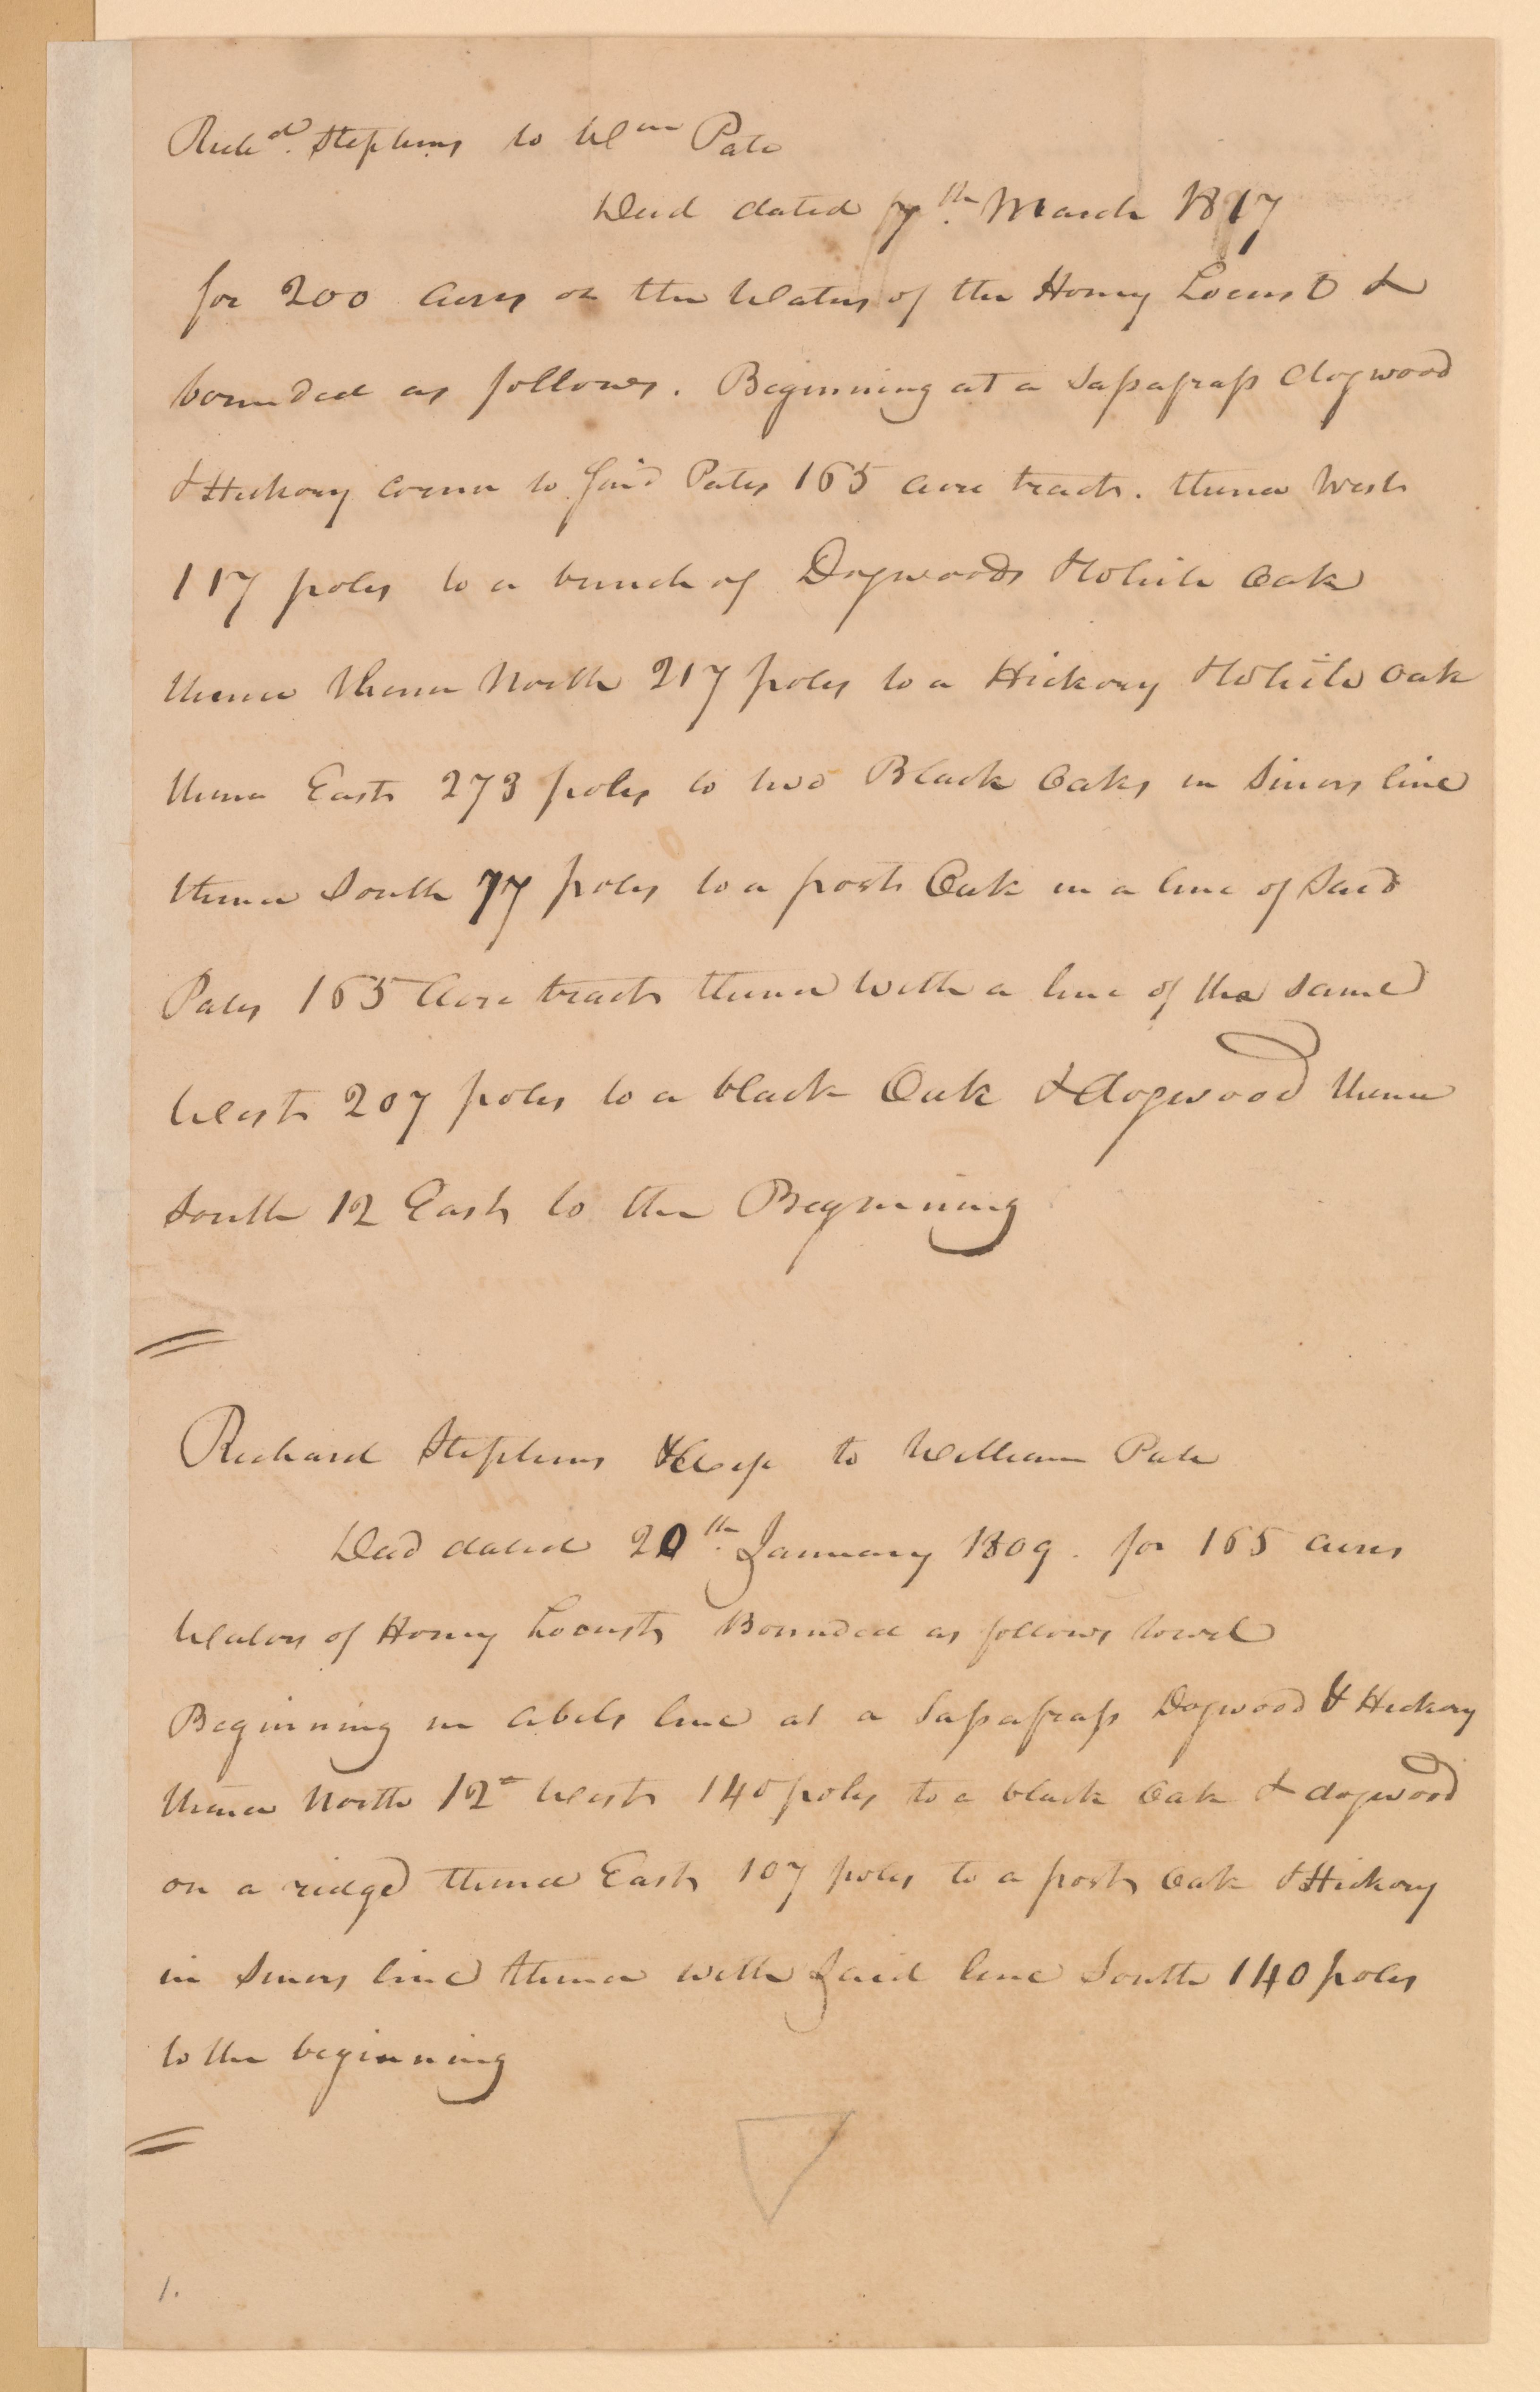 Richd. Stephens to Wm Pate
Deed dated 7th. March 1817
for 200 acres on the Waters of the Honey Locust &
bounded as follows. Beginning at a Sassafrass dogwood
& Hickory corner to said Pates 165 acre tract. thence West
117 poles to a bunch of Dogwoods & White Oak
thence thence North 217 poles to a Hickory & White Oak
thence East 273 poles to two Black Oaks in Simons line
thence South 77 poles to a post Oak in a line of Said
Pates 165 Acre tract thence with a line of the same
West 207 poles to a black Oak & dogwood thence
South 12 East to the Beginning
Richard Stephens to William Pate
Deed dated 20th. January 1809. for 165 acres
Waters of Honey Locust Bounded as follows towit
Beginning in Abels line at a Sassafrass Dogwood & Hickory
thence North 12° West 140 poles to a black Oak & dogwood
on a ridge thence East 107 poles to a post Oak & Hickory
in Simons line thence with said line South 140 poles
to the beginning
1.